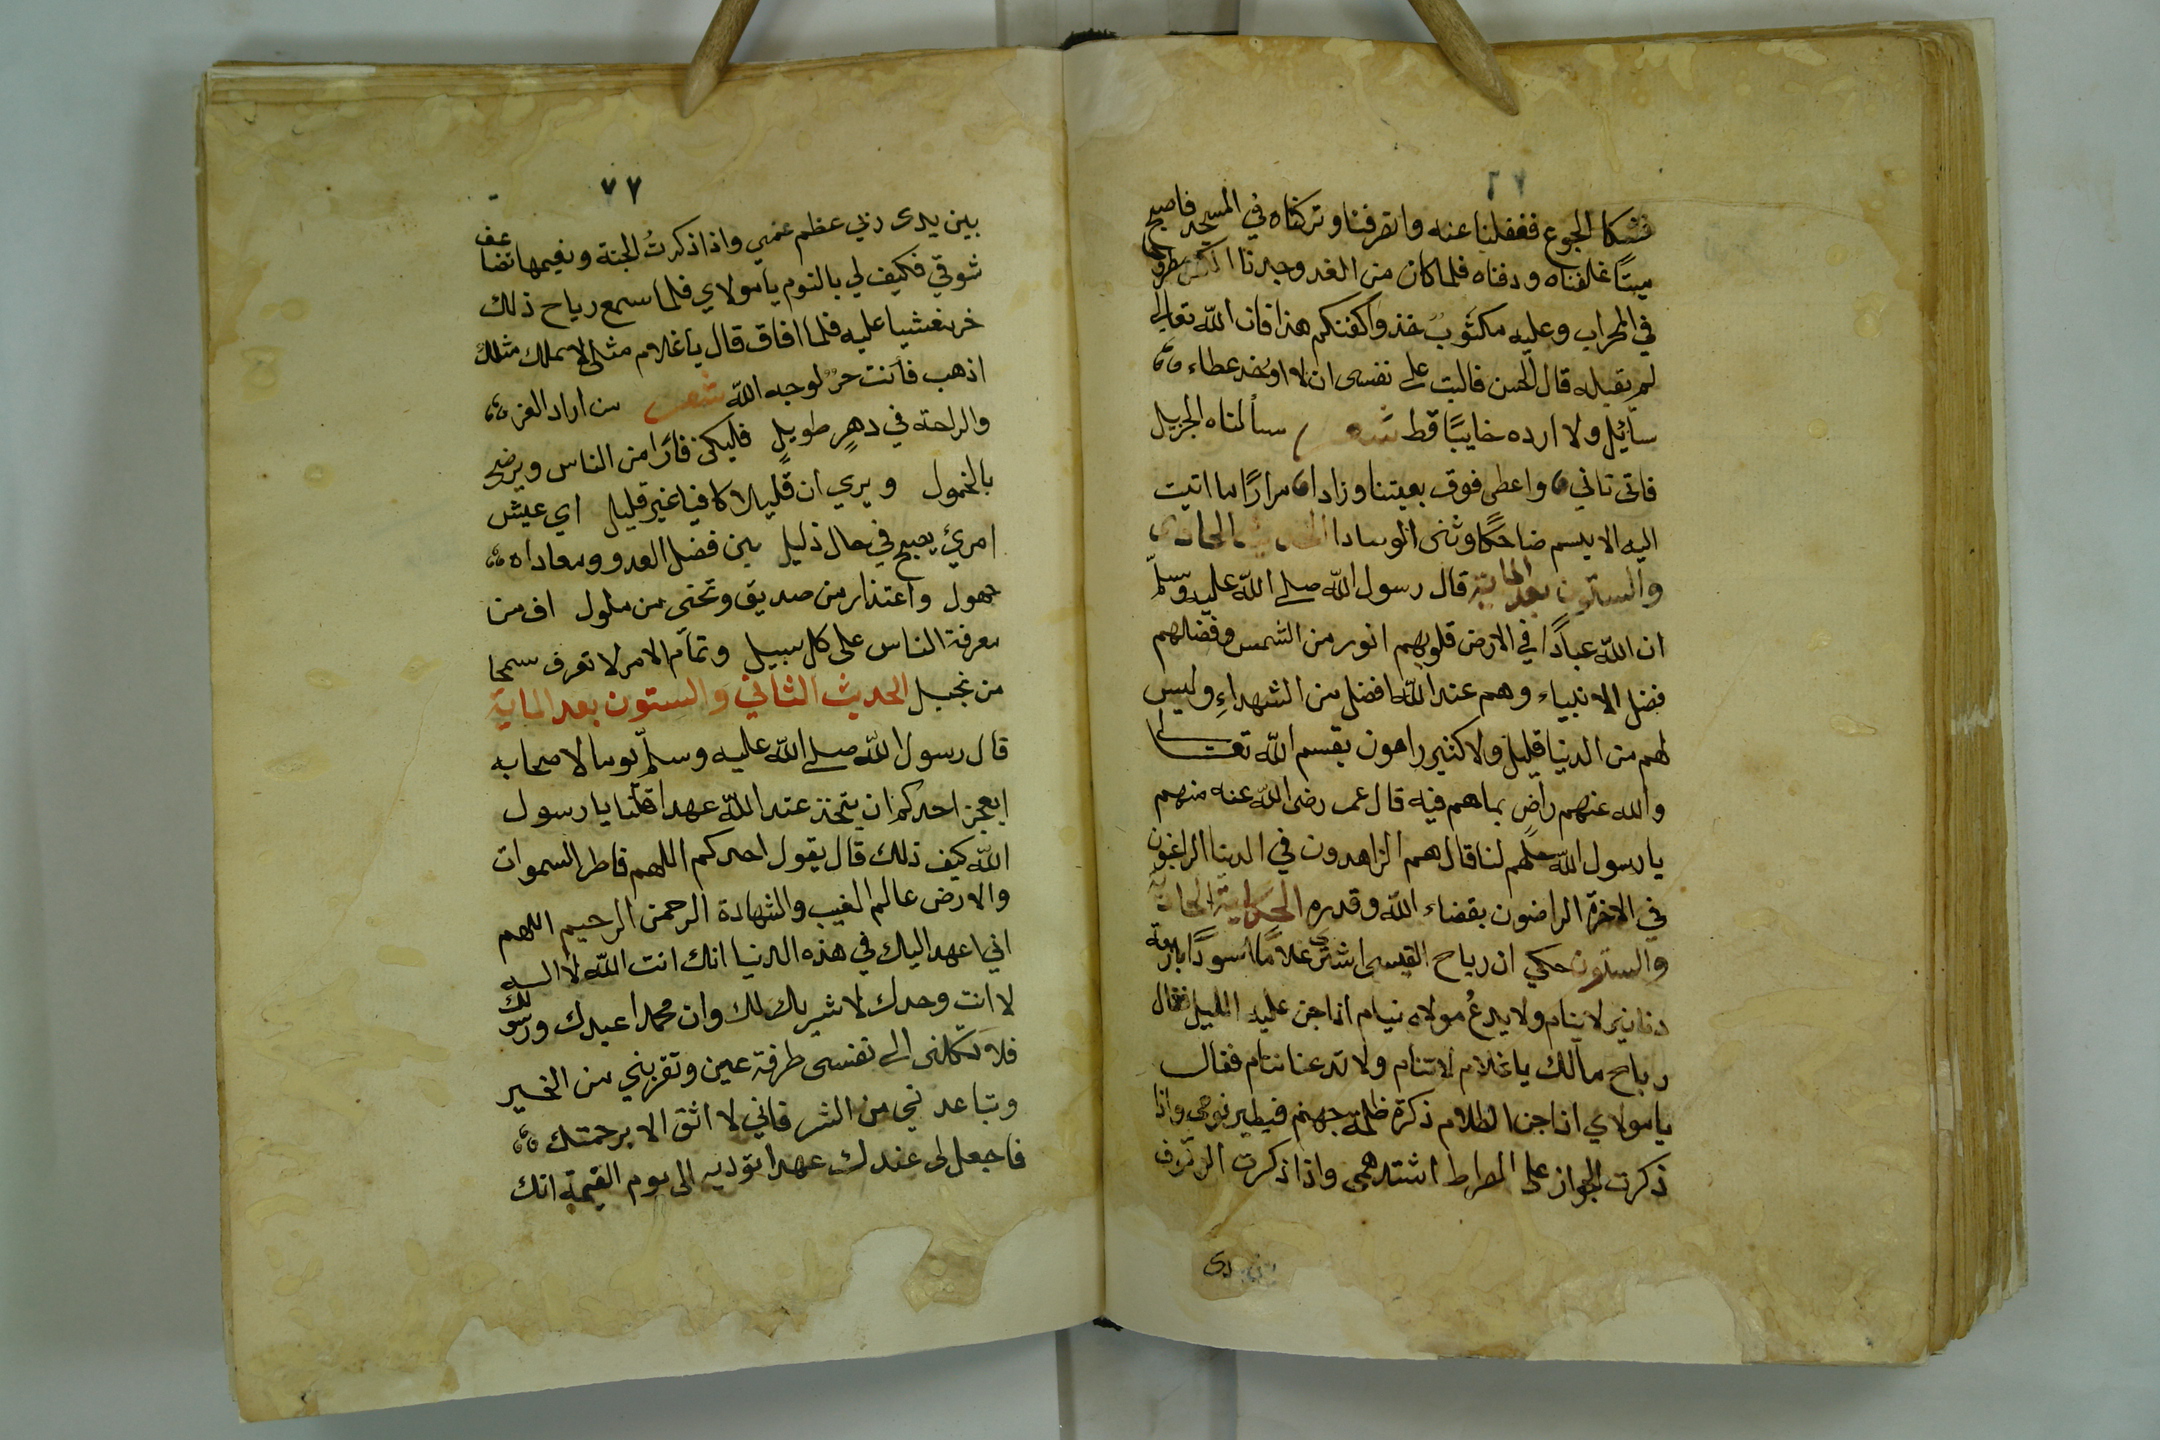 فشكا الجوع فغفلنا عنه وانصرفنا وتركناه في المسجد فاصبح
ميتًا فكفناه ودفناه فلما كان من الغد وجدنا الكفن مطروحا
في المحراب وعليه مكتوب خذوا كفنكم هذا فان الله تعالى
لم يقبله قال الحسن فاليت على نفسي ان لا اوخر عطاء
سآئل ولا ارده خايبًا قط شعر سألناه الجزيل
فاتى تاني واعطى فوق بغيتنا وزادا مرارًا ما اتيت
اليه الا يبسم ضاحكًا وثنى الوسادا الحديث الحادي
والستون بعد الماية قال رسول الله صلى الله عليه وسلم
ان لله عبادًا في الارض قلوبهم انور من الشمس وفضلهم
فضل الانبياء وهم عند الله افضل من الشهداءِ وليس
لهم من الدنيا قليل ولا كثير راضون بقسم الله تعالى
والله عنهم راضٍ بما هم فيه قال عمر رضى الله عنه منهم
يا رسول الله حلهم لنا قال هم الزاهدون في الدنيا الراغبون
في الاخرة الراضون بقضاء الله وقدره الحكاية الحادية
والستون حكي ان رياح القيسى اشترى غلامًا اسودًا باربعة
دنانير لا ينام ولا يدعُ مولاه ينام اذا جن عليه الليل فقال
رياح مالك يا غلام لا تنام ولا تدعنا ننام فقال
يا مولاي اذا جن الظلام ذكرة ظلمة جهنم فيطير نومى واذا
ذكرت الجواز على الصراط اشتد همى واذا ذكرت الوقوف
بين يدى
٧٧
بين يدى ربي عظم غمي واذا ذكرتُ الجنة ونعيمها تضاعف
شوقي فكيف لي بالنوم يا مولاي فلما سمع رياح ذلك
خر مغشيا عليه فلما افاق قال يا غلام مثلى لا يملك مثلك
اذهب فانت حرٌ لوجه الله شعر من اراد العز
والراحة في دهرٍ طويلٍ فليكن فارًا من الناس ويرضى
بالخمول ويري ان قليلا كافيا غير قليل اي عيش
امرئ يصبح في حال ذليل بين فضل العدو ومعاداه
جهول واعتذار من صديق وتجنى من ملول اف من
معرفة الناس على كل سبيل وتمآم الامر لا تعرف سمحا
من بخيل الحديث الثاني والستون بعد الماية
قال رسول الله صلى الله عليه وسلم يوما لاصحابه
ايعجز احدكم ان يتخذ عند الله عهدا قلنا يا رسول
الله كيف ذلك قال يقول احدكم اللهم فاطر السموات
والارض عالم الغيب والشهادة الرحمن الرحيم اللهم
اني اعهد اليك في هذه الدنيا انك انت الله لا اله
الا انت وحدك لا شريك لك وان محمدا عبدك ورسولك
فلا تكلنى الى نفسى طرفة عين وتقربني من الخير
وتباعدني من الشر فاني لا اثق الا برحمتك
فاجعل لى عندك عهدا تؤديه الى يوم القيمة انك